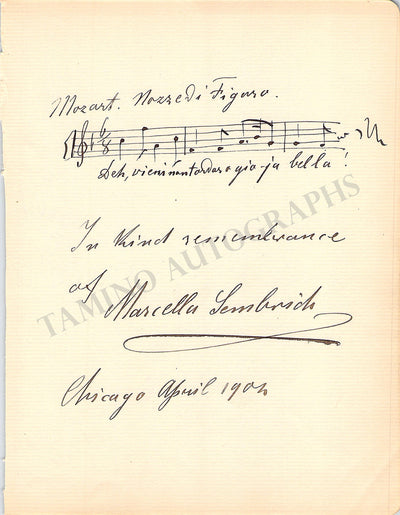 Mozart. Nozze di Figaro.
Deh, vieni non tardar o gio-ja bella!
In Kind remembrance
of Marcella Sembrich
Chicago April 190
TAMINO AUTOGRAPHS